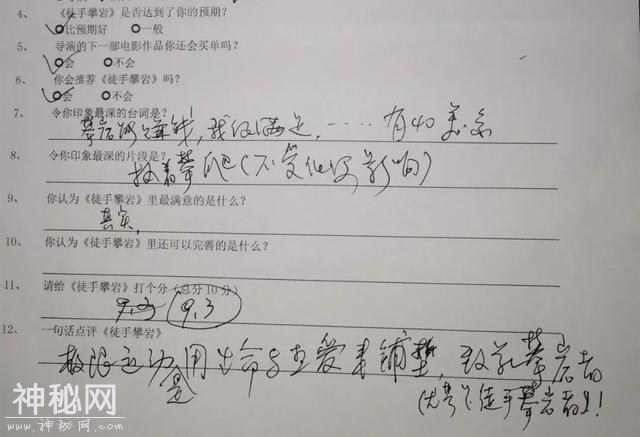 4、 《徒手攀岩》是否达到了你的预期？
比预期好 一般
5、 导演的下一部电影作品你还会买单吗？
会 不会
6、 你会推荐《徒手攀岩》吗？
会 不会
7、 令你印象最深的台词是？
攀岩能赚钱，我很满足，……有40美金
8、 令你印象最深的片段是？
攀爬（不受他们影响）
9、 你认为《徒手攀岩》里最满意的是什么？
真实，
10、 你认为《徒手攀岩》里还可以完善的是什么？
11、 请给《徒手攀岩》打个分（总分10分）
9.3
12、 一句话点评《徒手攀岩》
极限运动是用生命与热爱来铺垫，致敬攀岩者
徒手攀岩者们！
神秘网
www.神秘网.com